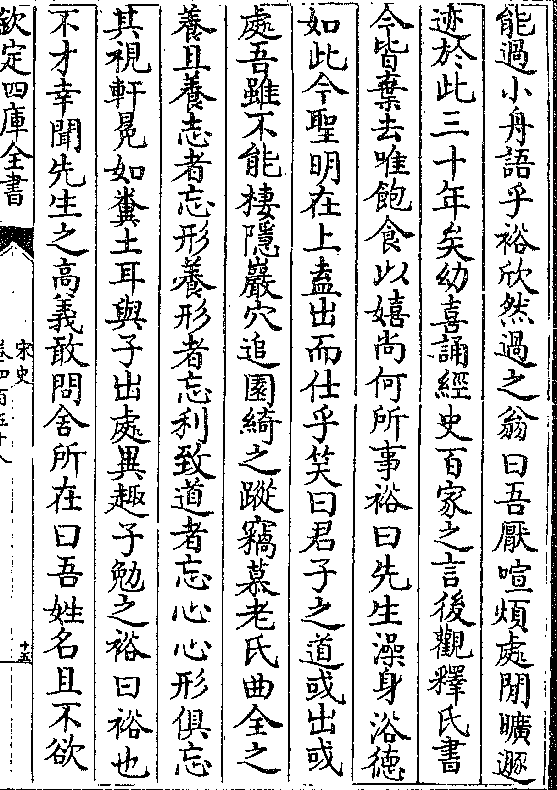 能過小舟語乎裕欣然過之翁曰吾厭喧煩處閒曠遯
迹於此三十年矣幼喜誦經史百家之言後觀釋氏書
今皆棄去唯飽食以嬉尚何所事裕曰先生澡身浴德
如此今聖明在上盍出而仕乎笑曰君子之道或出或
處吾雖不能棲隱巖穴追園綺之蹤竊慕老氏曲全之
義且養志者忘形養形者忘利致道者忘心心形俱忘
其視軒冕如糞土耳與子出處異趣子勉之裕曰裕也
不才幸聞先生之高義敢問舍所在曰吾姓名且不欲
欽定四庫全書
宋史
卷四百五十八
十五